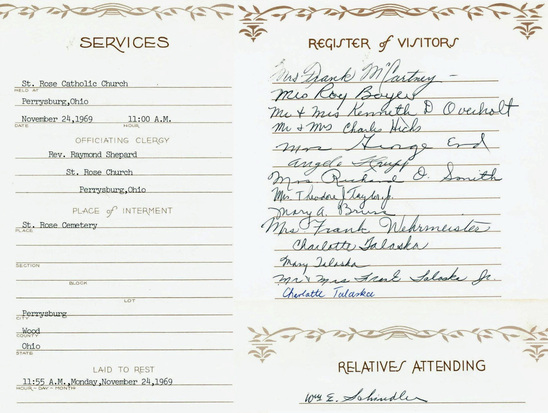 SERVICES
St. Rose Catholic Church
HELD AT
Perrysburg,Ohio
November 24,1969 11:00 A.M.
DATE HOUR
OFFICIATING CLERGY
Rev. Raymond Shepard
St. Rose Church
Perrysburg,Ohio
PLACE of INTERMENT
St. Rose Cemetery
PLACE
SECTION
BLOCK
LOT
Perrysburg
CITY
Wood
COUNTY
Ohio
STATE
LAID TO REST
11:55 A.M.,Monday,November 24,1969
HOUR - DAY - MONTH
REGISTER of VISITORS
Mrs Frank McCartney -
Mrs Roy Boyer
Mr & Mrs Kenneth D Overholt
Mr & Mrs Charles Hicks
Mrs George End
Angela
Mrs Richard D. Smith
Mrs Theodore J Taylor Jr.
Mary A.
Mrs Frank Wehrmeister
Charlotte Talaska
Mary Talaska
Mr & Mrs Frank Talaska Jr.
Charlotte Talaska
RELATIVES ATTENDING
Wm E. Schindler